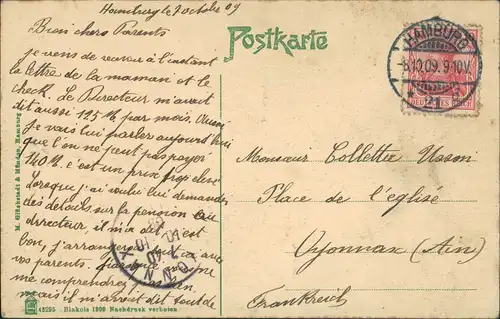 Hambourg le 7 octobre 09
Bien chers Parents
je viens de recevoir à l'instant
la lettre de la maman et le
check. Le Directeur m'avait
dit aussi 125 M par mois. Aussi
je vais lui parler aujourd'hui
que l'on ne peut pas payer
140 M. c'est un prix trop cher
Lorsque j'ai voulu lui demander
des détails sur la pension au
directeur il m'a dit c'est
bon, j'arrangerai
vos parents.
me comprendre
mais il m'avait dit tout de
Postkarte
HAMBURG
8.10.09. 9-10V.
* 1
Monsieur Collettee Usson
Place de l'église
Oyonnax (Ain)
Frankreich
M. Glückstadt & Münden, Hamburg
48295 Blakois 1909 Nachdruck verboten